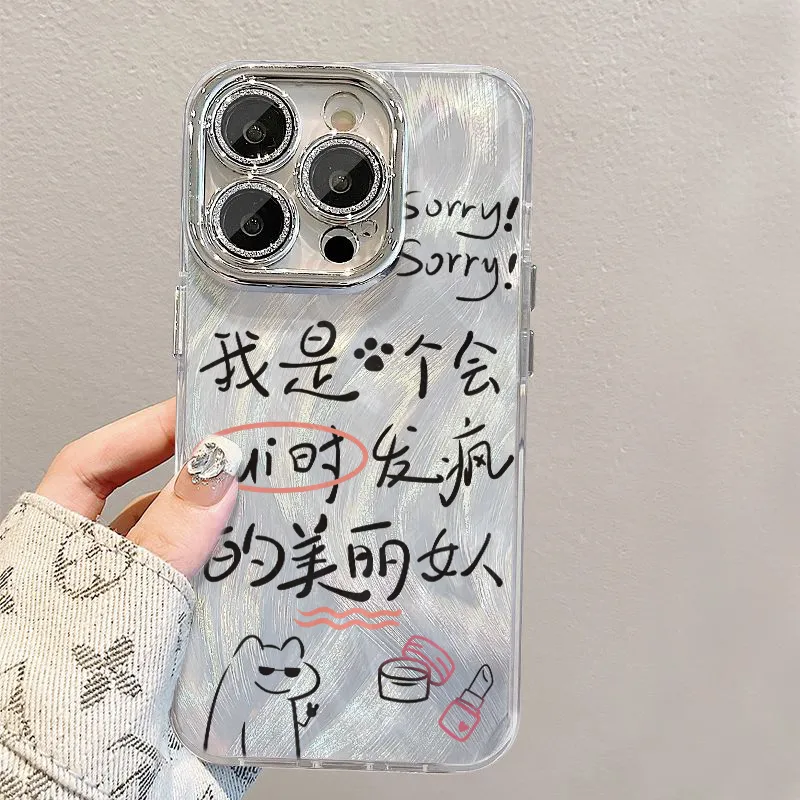 Sorry!
Sorry!
我是个会
ui时发疯
的美丽女人